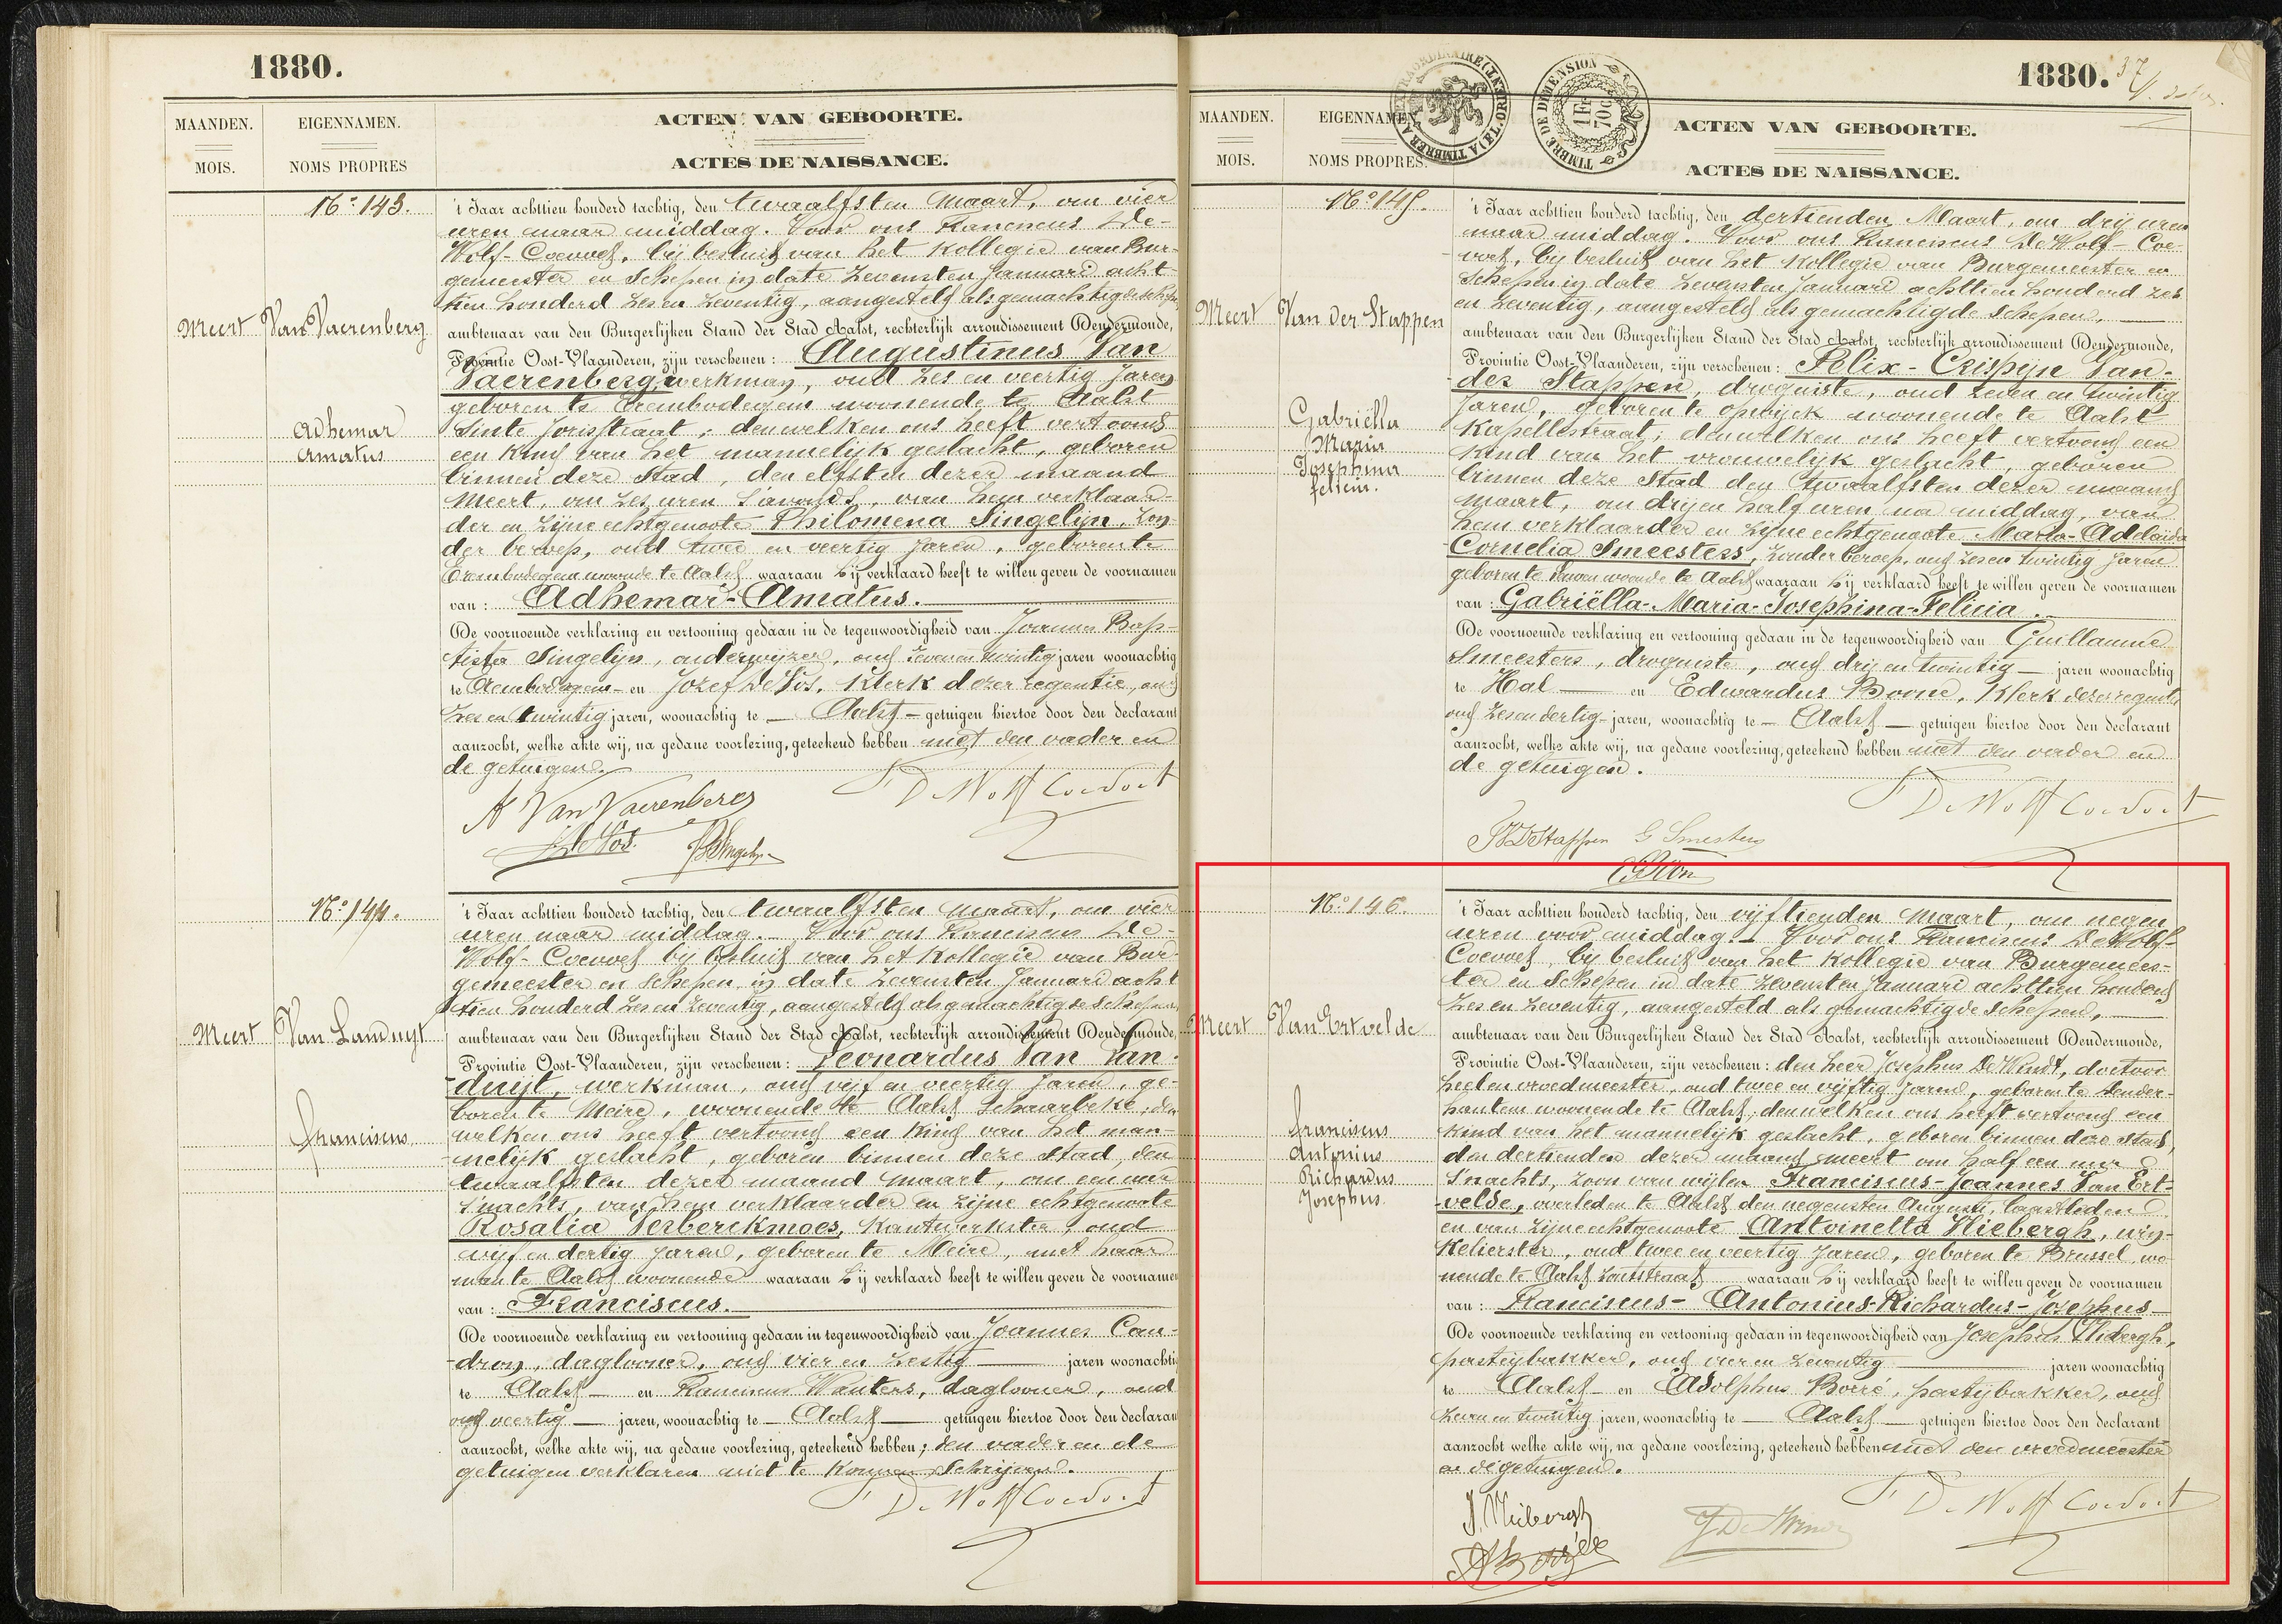 1880.
MAANDEN.
MOIS.
EIGENNAMEN.
NOMS PROPRES
ACTEN VAN GEBOORTE.
ACTES DE NAISSANCE.
No 143.
Meert
Van Vaerenberg
Adhemar
Amatus
't Jaar achttien honderd tachtig, den twaalfsten Maart, om vier
uren naar middag. Voor ons Franciscus De-
Wolf-Coevoet, bij besluit van het Kollegie van Bur-
gemeester en Schepen in date Zevensten Januari acht-
tien honderd zes en zeventig, aangesteld als gemachtigde schepen
ambtenaar van den Burgerlijken Stand der Stad Aalst, rechterlijk arrondissement Dendermonde,
Provintie Oost-Vlaanderen, zijn verschenen: Augustinus Van
Vaerenberg, werkman, oud zes en veertig jaren
geboren te Erembodegem woonende te Aalst
Sinte Jorisstraat; denwelken ons heeft vertoond
een kind van het mannelijk geslacht, geboren
binnen deze Stad, den elfsten dezer maand
Meert, om zes uren s'avonds, van hem verklaar-
der en zijne echtgenoote Philomena Singelijn, zon-
der beroep, oud twee en veertig jaren, geboren te
Erembodegem woonende te Aalst waaraan hij verklaard heeft te willen geven de voornamen
van: Adhemar-Amatus.
De voornoemde verklaring en vertooning gedaan in de tegenwoordigheid van Joannes Bap-
tista Singelijn, onderwijzer, oud zeven en twintig jaren woonachtig
te Erembodegem en Jozef De Vos, Klerk dezer regentie, oud
zes en twintig jaren, woonachtig te Aalst getuigen hiertoe door den declarant
aanzocht, welke akte wij, na gedane voorlezing, geteekend hebben met den vader en
de getuigen.
A Van Vaerenberg
F De Wolf Coevoet
J De Vos.
No 144.
Meert
Van Landuyt
Franciscus
't Jaar achttien honderd tachtig, den twaalfsten Maart, om vier
uren naar middag. Voor ons Franciscus De-
Wolf-Coevoet bij besluit van het Kollegie van Bur-
gemeester en Schepen, in date Zevensten Januari acht
tien honderd zes en zeventig, aangesteld als gemachtigde schepen
ambtenaar van den Burgerlijken Stand der Stad Aalst, rechterlijk arrondissement Dendermonde,
Provintie Oost-Vlaanderen, zijn verschenen: Leonardus Van Lan-
duijt, werkman, oud vijf en veertig jaren, ge-
boren te Meire, woonende te Aalst Schaarbeke; den
welken ons heeft vertoond een kind van het man-
nelijk geslacht, geboren binnen deze Stad, den
twaalfsten dezer maand Maart, om een uur
s'nachts, van hem verklaarder en zijne echtgenoote
Rosalia Verberckmoes, kantwerkster, oud
vijf en dertig jaren, geboren te Meire, met haar
man te Aalst woonende waaraan hij verklaard heeft te willen geven de voornamen
van: Franciscus.
De voornoemde verklaring en vertooning gedaan in tegenwoordigheid van Joannes Cau-
dron, daglooner, oud vier en zestig jaren woonachtig
te Aalst en Franciscus Wauters, daglooner, oud
oud veertig jaren, woonachtig te Aalst getuigen hiertoe door den declarant
aanzocht, welke akte wij, na gedane voorlezing, geteekend hebben; den vader en de
getuigen verklaren niet te konnen schrijven.
F De Wolf Coevoet
1880.
37
MAANDEN.
MOIS.
EIGENNAMEN.
NOMS PROPRES.
TIMBRE DE DIMENSION
1 Fr
70 C
ACTEN VAN GEBOORTE.
ACTES DE NAISSANCE.
No 145.
Meert
Van Der Stappen
Gabriëlla
Maria
Josephina
felicia.
't Jaar achttien honderd tachtig, den dertienden Maart, om drij uren
naar middag. Voor ons Franciscus De Wolf-Coe-
voet, bij besluit van het Kollegie van Burgemeester en
Schepen in date Zevensten Januari achttien honderd zes
en zeventig, aangesteld als gemachtigde schepen,
ambtenaar van den Burgerlijken Stand der Stad Aalst, rechterlijk arrondissement Dendermonde,
Provintie Oost-Vlaanderen, zijn verschenen: Felix-Crispijn Van-
der Stappen, droguiste, oud zeven en twintig
jaren, geboren te Opwijck woonende te Aalst
Kapellestraat; denwelken ons heeft vertoond een
kind van het vrouwelijk geslacht, geboren
binnen deze Stad den twaalfsten dezer maand
Maart, om drij en half uren na middag, van
hem verklaarder en zijne echtgenoote Maria-Adelaida
Cornelia Smeesters, zonder beroep, oud zes en twintig jaren
geboren te Leuven woonende te Aalst waaraan hij verklaard heeft te willen geven de voornamen
van: Gabriëlla-Maria-Josephina-Felicia.
De voornoemde verklaring en vertooning gedaan in de tegenwoordigheid van Guillaume
Smeesters, droguiste, oud drij en twintig jaren woonachtig
te Hal en Edwardus Boone, Klerk dezer regentie,
oud zes en dertig jaren, woonachtig te Aalst getuigen hiertoe door den declarant
aanzocht, welke akte wij, na gedane voorlezing, geteekend hebben met den vader en
de getuigen.
F De Wolf Coevoet
FVDStappen G Smeesters
No 146.
Meert
Van Ertvelde
Franciscus
Antonius
Richardus
Josephus.
't Jaar achttien honderd tachtig, den vijftienden Maart, om negen
uren voor middag. Voor ons Franciscus De Wolf-
Coevoet, bij besluit van het Kollegie van Burgemees-
ter en Schepen in date Zevensten Januari achttien honderd
zes en zeventig, aangesteld als gemachtigde schepen,
ambtenaar van den Burgerlijken Stand der Stad Aalst, rechterlijk arrondissement Dendermonde,
Provintie Oost-Vlaanderen, zijn verschenen: den heer Josephus De Windt, doctoor
heel en vroedmeester, oud twee en vijftig jaren, geboren te Dender-
hautem woonende te Aalst; denwelken ons heeft vertoond een
kind van het mannelijk geslacht, geboren binnen deze Stad,
den dertienden dezer maand Meert om half een uur
s'nachts, zoon van wijlen Franciscus-Joannes Van Ert-
velde, overleden te Aalst den negensten Augusti, laastleden
en van zijne echtgenoote Antoinetta Vliebergh, win-
kelierster, oud twee en veertig jaren, geboren te Brussel, wo-
nende te Aalst Zoutstraat waaraan hij verklaard heeft te willen geven de voornamen
van: Franciscus-Antonius-Richardus-Josephus
De voornoemde verklaring en vertooning gedaan in tegenwoordigheid van Josephus Vliebergh,
pasteijbakker, oud vier en zeventig jaren woonachtig
te Aalst en Adolphus Borré, pasteijbakker, oud
zeven en twintig jaren, woonachtig te Aalst getuigen hiertoe door den declarant
aanzocht welke akte wij, na gedane voorlezing, geteekend hebben met den vroedmeester
en de getuigen.
J. Vliebergh
J De Windt
F De Wolf Coevoet